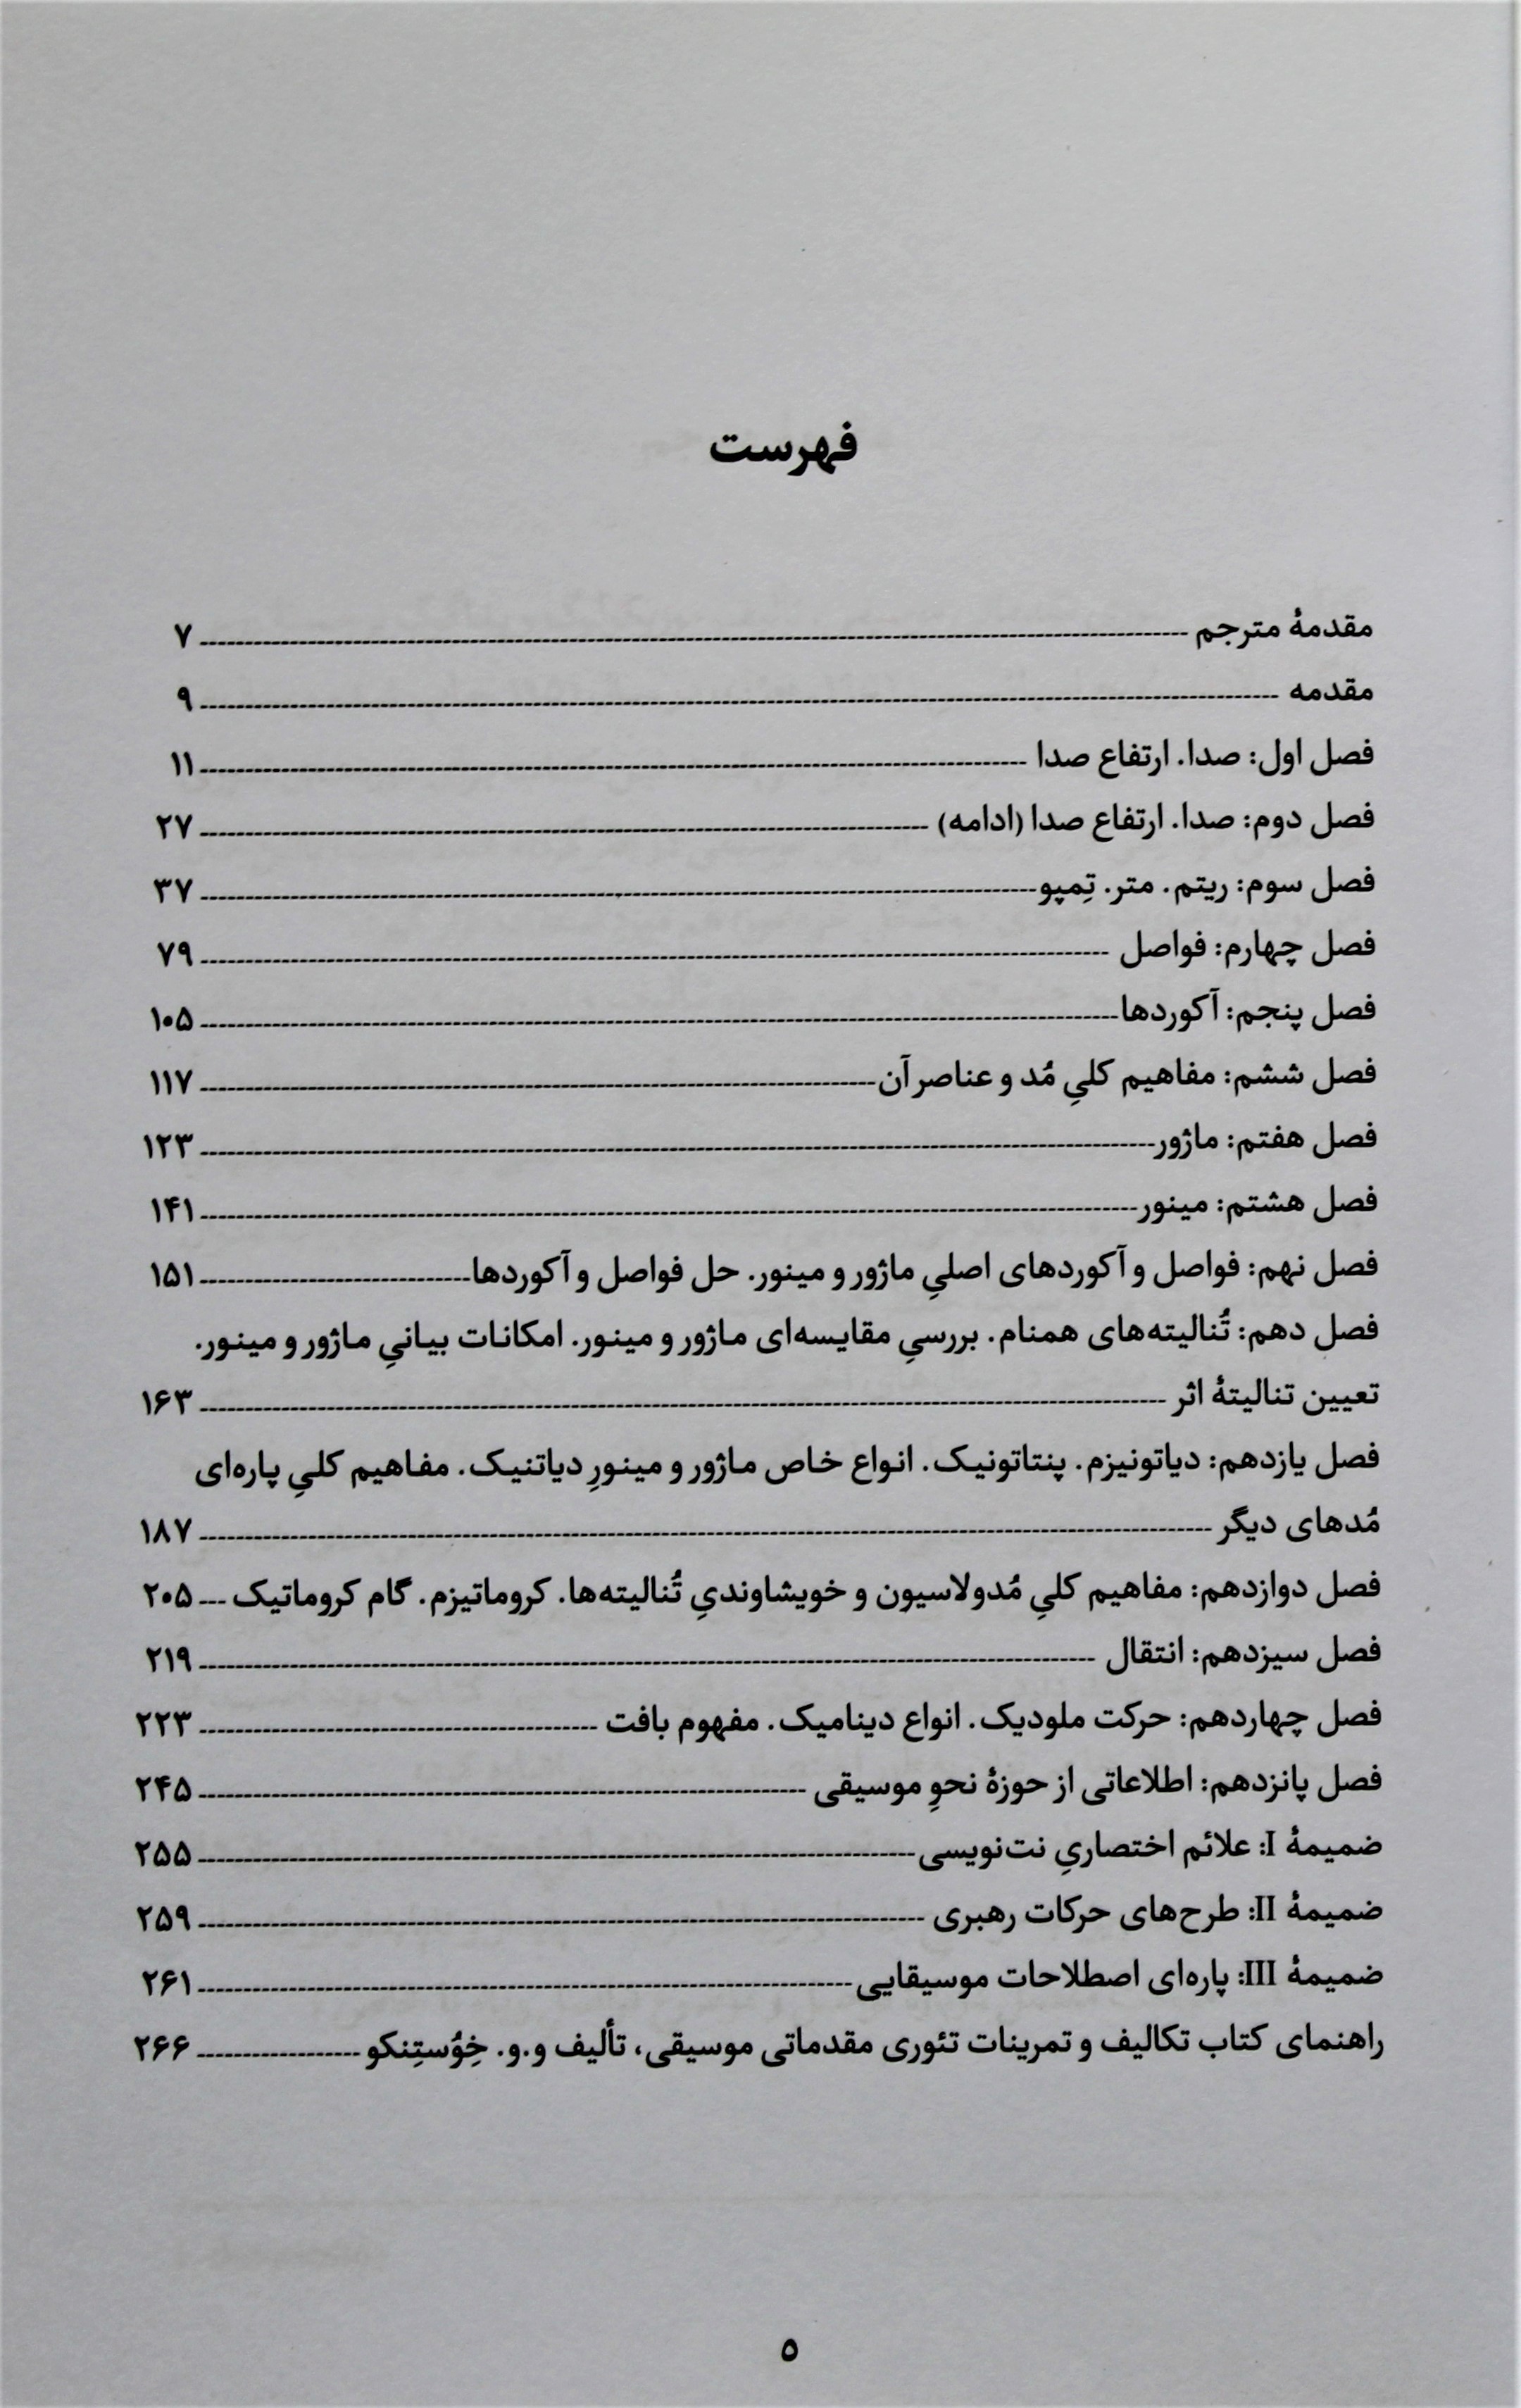 فهرست
مقدمهٔ مترجم ۷
مقدمه ۹
فصل اول: صدا. ارتفاع صدا ۱۱
فصل دوم: صدا. ارتفاع صدا (ادامه) ۲۷
فصل سوم: ریتم. متر. تِمپو ۳۷
فصل چهارم: فواصل ۷۹
فصل پنجم: آکوردها ۱۰۵
فصل ششم: مفاهیم کلیِ مُد و عناصر آن ۱۱۷
فصل هفتم: ماژور ۱۲۳
فصل هشتم: مینور ۱۴۱
فصل نهم: فواصل و آکوردهای اصلیِ ماژور و مینور. حل فواصل و آکوردها ۱۵۱
فصل دهم: تُنالیته‌های همنام. بررسیِ مقایسه‌ای ماژور و مینور. امکانات بیانیِ ماژور و مینور.
تعیین تنالیتهٔ اثر ۱۶۳
فصل یازدهم: دیاتونیزم. پنتاتونیک. انواع خاص ماژور و مینورِ دیاتنیک. مفاهیم کلیِ پاره‌ای
مُدهای دیگر ۱۸۷
فصل دوازدهم: مفاهیم کلیِ مُدولاسیون و خویشاوندیِ تُنالیته‌ها. کروماتیزم. گام کروماتیک ۲۰۵
فصل سیزدهم: انتقال ۲۱۹
فصل چهاردهم: حرکت ملودیک. انواع دینامیک. مفهوم بافت ۲۲۳
فصل پانزدهم: اطلاعاتی از حوزهٔ نحوِ موسیقی ۲۴۵
ضمیمهٔ I: علائم اختصاریِ نت‌نویسی ۲۵۵
ضمیمهٔ II: طرح‌های حرکات رهبری ۲۵۹
ضمیمهٔ III: پاره‌ای اصطلاحات موسیقایی ۲۶۱
راهنمای کتاب تکالیف و تمرینات تئوری مقدماتی موسیقی، تألیف و.و. خِوُستِنکو ۲۶۶
۵